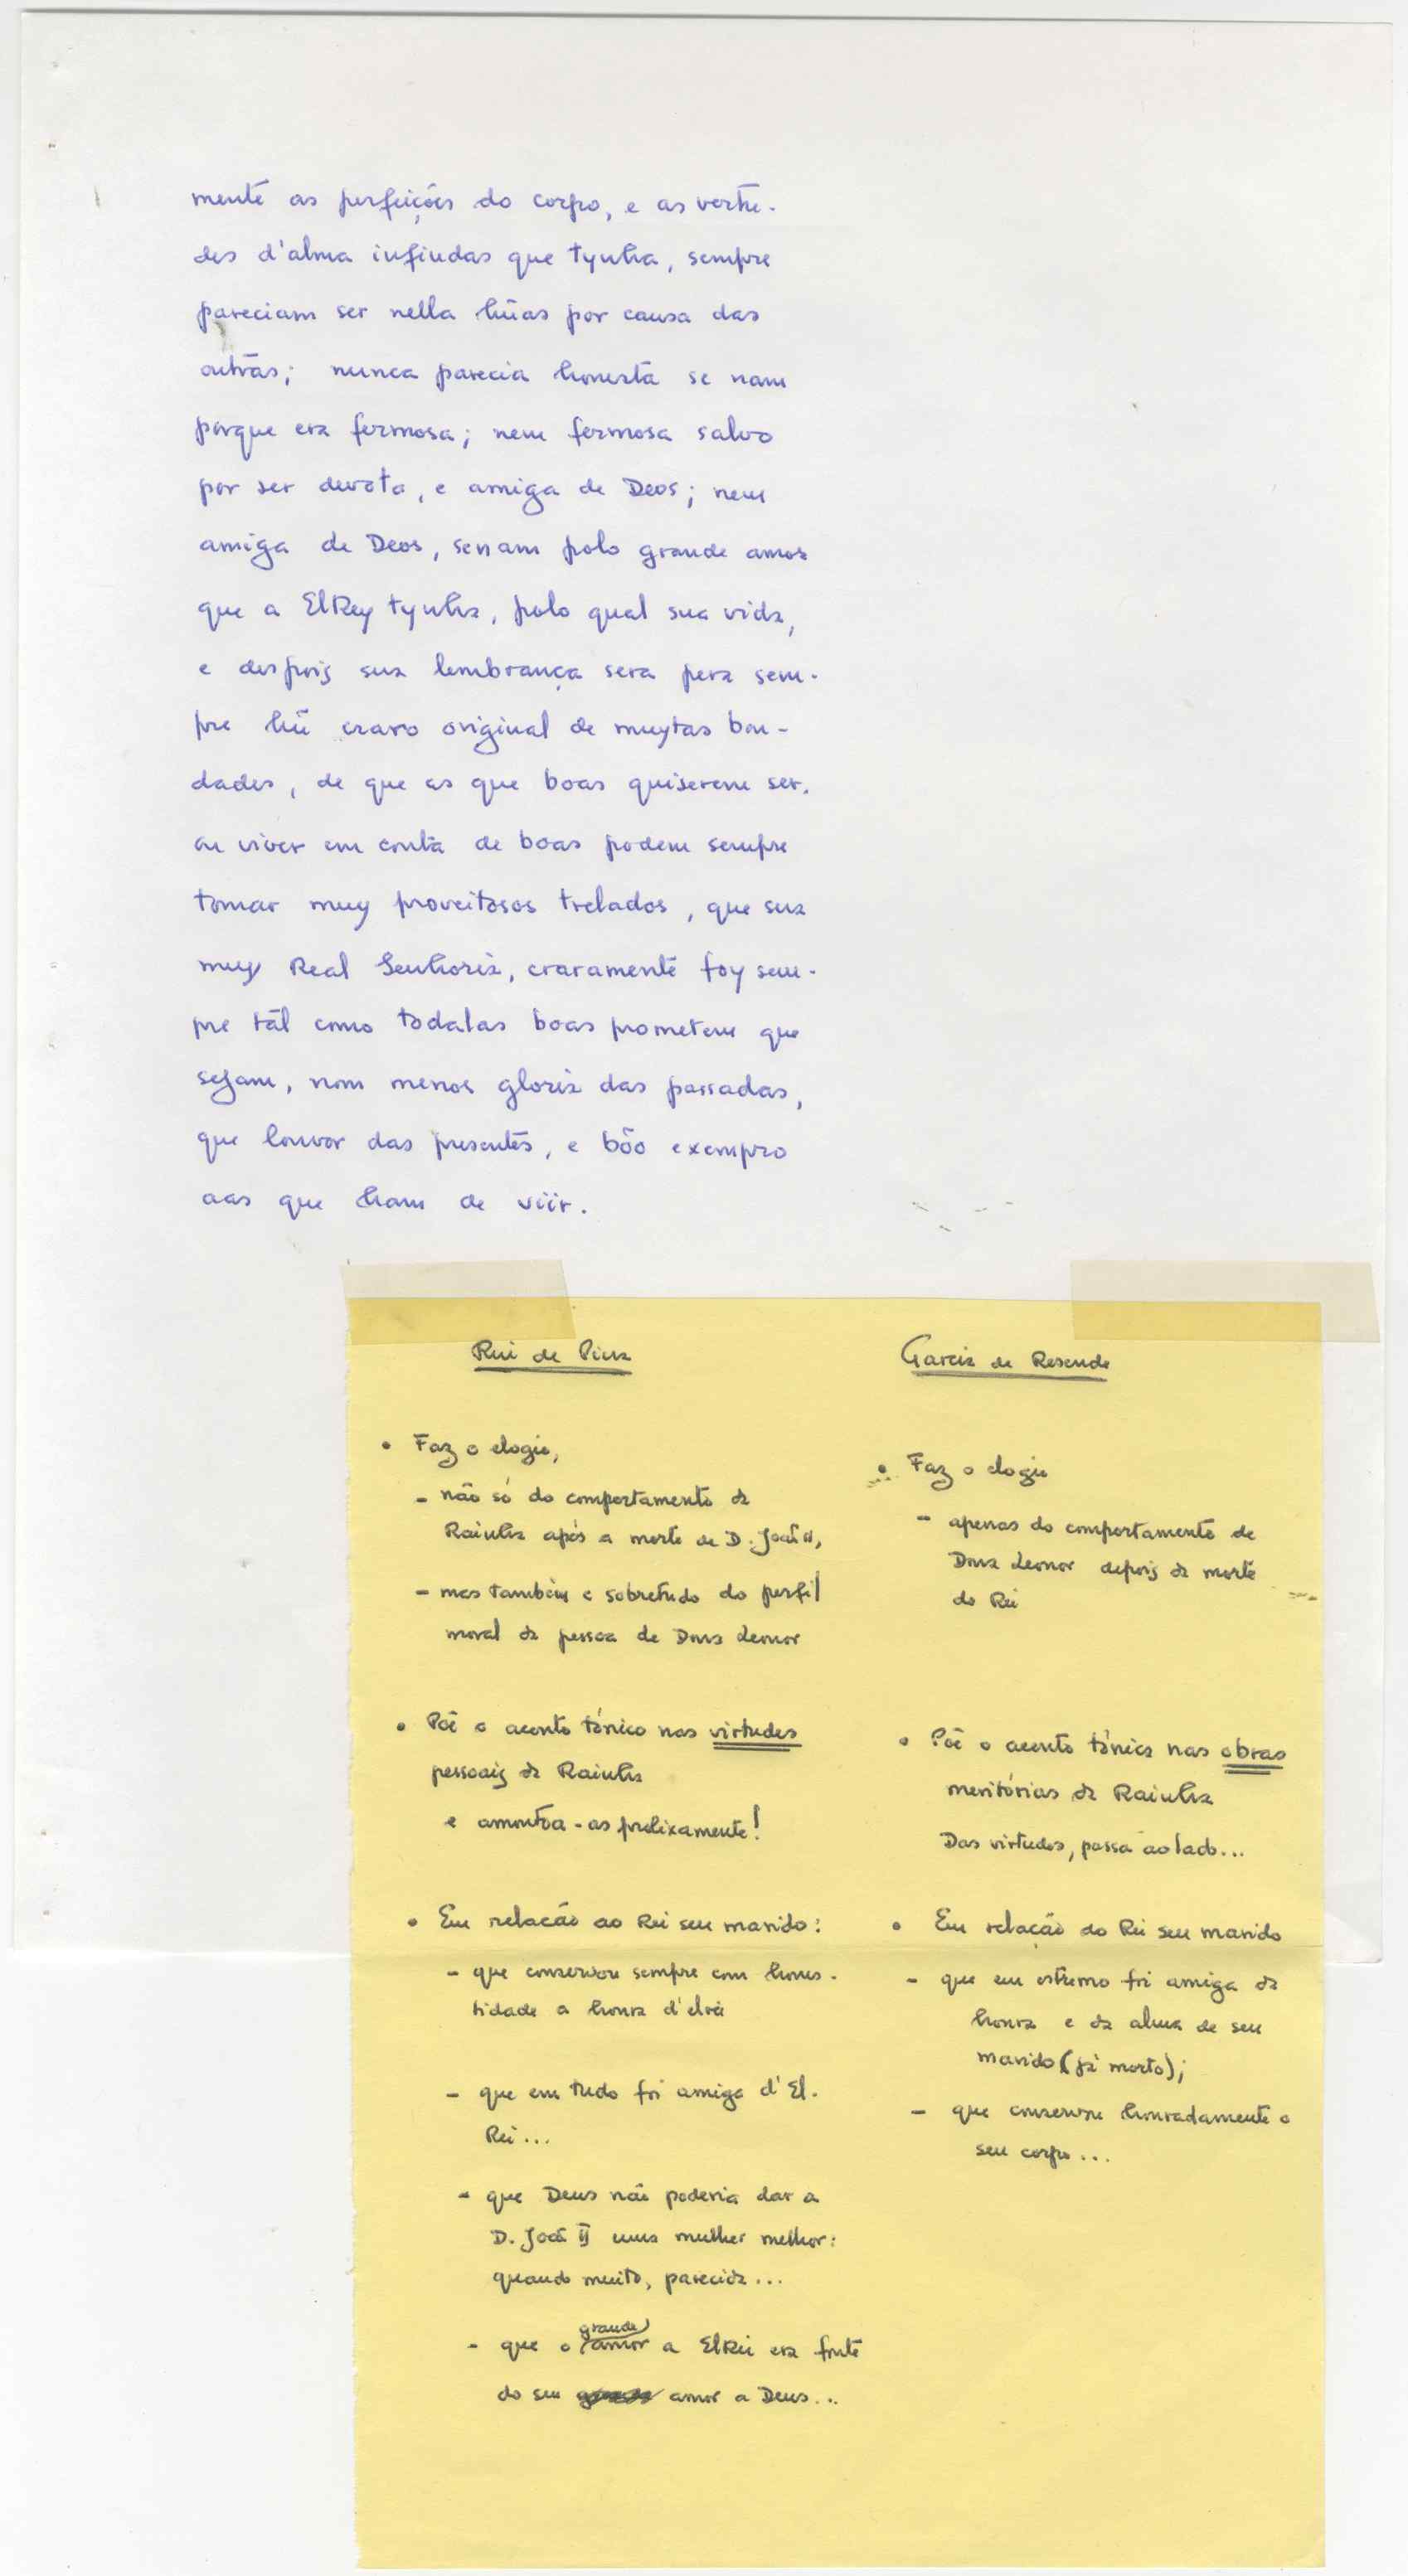 mente as perfeições do corpo, e as vertu-
des d'alma infindas que tynha, sempre
pareciam ser nella hũas por causa das
outras; nunca parecia honesta se nam
porque era fermosa; nem fermosa salvo
por ser devota, e amiga de Deos; nem
amiga de Deos, senam polo grande amor
que a ElRey tynha, polo qual sua vida,
e despois sua lembrança sera pera sem-
pre hũ craro original de muytas bon-
dades, de que as que boas quiserem ser,
ou viver em conta de boas podem sempre
tomar muy proveitosos trelados, que sua
muy Real Senhoria, craramente foy sem-
pre tal como todalas boas prometem que
sejam, nom menos gloria das passadas,
que louvor das presentes, e bõo exempro
aas que ham de viir.
Rui de Pina
• Faz o elogio,
- não só do comportamento da
Rainha após a morte de D. João II,
- mas também e sobretudo do perfil
moral da pessoa de Dona Leonor
• Põe o acento tónico nas virtudes
pessoais da Rainha
e amontoa-as prolixamente!
• Em relação ao Rei seu marido:
- que conservou sempre com hones-
tidade a honra d'elrei
- que em tudo foi amiga d'El-
Rei...
- que Deus não poderia dar a
D. João II uma mulher melhor:
quando muito, parecida...
- que o grande amor a ElRei era fonte
do seu amor a Deus...
Garcia de Resende
• Faz o elogio
- apenas do comportamento de
Dona Leonor depois da morte
do Rei
• Põe o acento tónico nas obras
meritórias da Rainha
Das virtudes, passa ao lado...
• Em relação ao Rei seu marido
- que em estremo foi amiga da
honra e da alma de seu
marido (já morto);
- que conservou honradamente o
seu corpo...